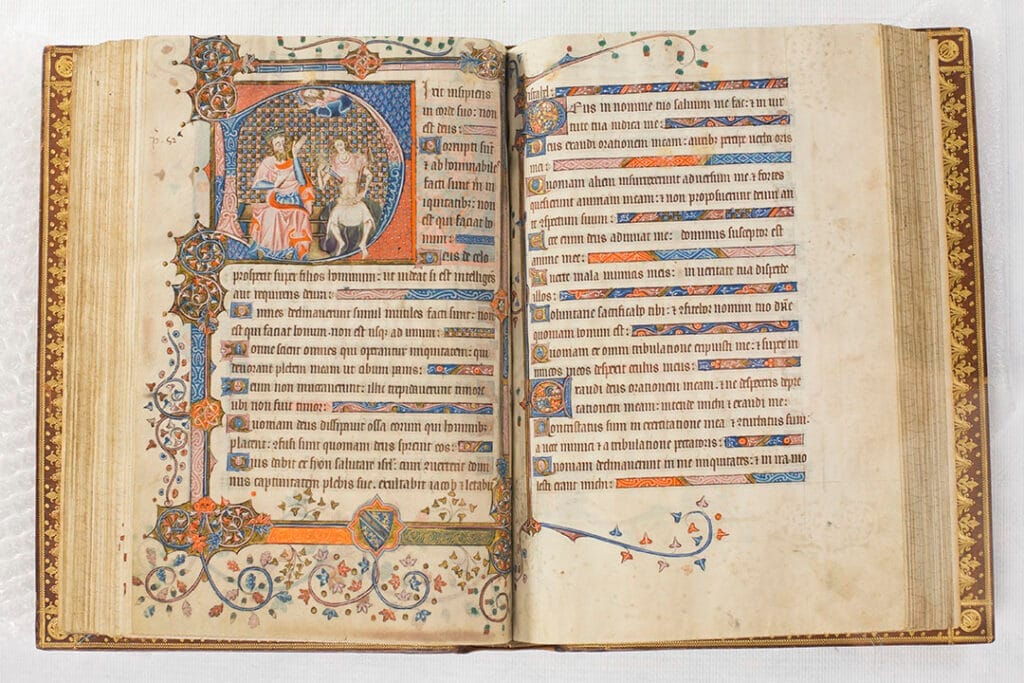 p. 52
Dixit insipiens
in corde suo: non
est deus:
Corrupti sūt
& abhominabiles
facti sunt in in
iquitatibꝫ: non
est qui faciat bo
num:
Deus de celo
prospexit super filios hominum: ut uideat si est intelligēs
aut requirens deum:
Omnes declinauerunt simul inutiles facti sunt: non
est qui faciat bonum. non est usqꝫ ad unum:
Nonne scient omnes qui operantur iniquitatem: qui
deuorant plebem meam ut cibum panis:
Deum non inuocauerunt: illic trepidauerunt timore
ubi non fuit timor:
Quoniam deus dissipauit ossa eorum qui hominibꝫ
placent: ꝯfusi sunt quoniam deus spreuit eos:
Quis dabit ex syon salutare isrl: cum ꝯuerterit domi
nus captiuitatem plebis sue. exultabit iacob & letabit̉
israel:
Deus in nomine tuo saluum me fac: & in uir
tute tua iudica me:
Deus exaudi orationem meam: auribꝫ percipe uerba oris
mei:
Quoniam alieni insurrexerunt aduersum me & fortes
quesierunt animam meam: & non proposuerunt deum an
te ꝯspectum suum:
Ecce enim deus adiuuat me: dominus susceptor est
anime mee:
Auerte mala inimicis meis: in ueritate tua disperde
illos:
Uoluntarie sacrificabo tibi: & ꝯfitebor nomini tuo dn̄e
quoniam bonum est:
Quoniam ex omni tribulatione eripuisti me: & super in
imicos meos despexit oculus meus:
Exaudi deus orationem meam: & ne despexeris depre
cationem meam: intende michi & exaudi me:
Contristatus sum in exercitatione mea & ꝯturbatus sum:
a uoce inimici & a tribulatione peccatoris:
Quoniam declinauerunt in me iniquitates: & in ira mo
lesti erant michi: